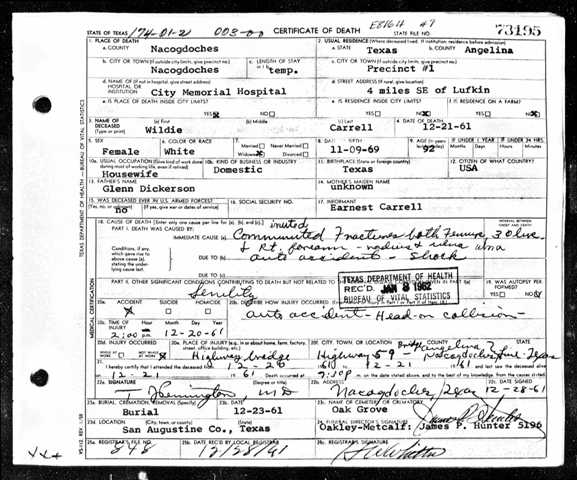 E8164 #7
STATE OF TEXAS 174-01-2 003-00 CERTIFICATE OF DEATH STATE FILE NO. 73195
1. PLACE OF DEATH
a. COUNTY Nacogdoches
2. USUAL RESIDENCE (Where deceased lived. If institution: residence before admission)
a. STATE Texas b. COUNTY Angelina
b. CITY OR TOWN (If outside city limits, give precinct no.) Nacogdoches
c. LENGTH OF STAY temp.
c. CITY OR TOWN (If outside city limits, give precinct no.) Precinct #1
d. NAME OF (If not in hospital, give street address) HOSPITAL OR INSTITUTION City Memorial Hospital
d. STREET ADDRESS (If rural, give location) 4 miles SE of Lufkin
e. IS PLACE OF DEATH INSIDE CITY LIMITS? YES NO
e. IS RESIDENCE INSIDE CITY LIMITS? YES NO
f. IS RESIDENCE ON A FARM? YES NO
3. NAME OF DECEASED (Type or print) (a) First Wildie (b) Middle (c) Last Carrell
4. DATE OF DEATH 12-21-61
5. SEX Female
6. COLOR OR RACE White
7. Married Never Married Widowed Divorced
8. DATE OF BIRTH 11-09-69
9. AGE 92
IF UNDER 1 YEAR Months Days IF UNDER 24 HRS. Hours Min.
10a. USUAL OCCUPATION (Give kind of work done during most of working life, even if retired) Housewife
10b. KIND OF BUSINESS OR INDUSTRY Domestic
11. BIRTHPLACE (State or foreign country) Texas
12. CITIZEN OF WHAT COUNTRY? USA
13. FATHER'S NAME Glenn Dickerson
14. MOTHER'S MAIDEN NAME unknown
15. WAS DECEASED EVER IN U.S. ARMED FORCES? (Yes, no, or unknown) (If yes, give war or dates of service) no
16. SOCIAL SECURITY NO.
17. INFORMANT Earnest Carrell
18. CAUSE OF DEATH [Enter only one cause per line for (a), (b), and (c).]
PART I. DEATH WAS CAUSED BY:
IMMEDIATE CAUSE (a) Comminuted Fractures both Femurs,
& Rt. forearm - radius & ulna
Conditions, if any, which gave rise to above cause (a), stating the underlying cause last.
DUE TO (b) auto accident - Shock
DUE TO (c)
INTERVAL BETWEEN ONSET AND DEATH
PART II. OTHER SIGNIFICANT CONDITIONS CONTRIBUTING TO DEATH BUT NOT RELATED TO
Senility
TEXAS DEPARTMENT OF HEALTH
REC'D. JAN 8 1962
BUREAU OF VITAL STATISTICS
19. WAS AUTOPSY PERFORMED? YES NO
20a. ACCIDENT SUICIDE HOMICIDE
20b. DESCRIBE HOW INJURY OCCURRED.
auto accident - Head-on collision -
20c. TIME OF INJURY Hour 2:00 p.m. Month Day Year 12-20-61
20d. INJURY OCCURRED
20e. PLACE OF INJURY (e.g., in or about home, farm, factory, street, office building, etc.) Highway bridge
20f. CITY, TOWN, OR LOCATION COUNTY STATE
Highway 59 - Nacogdoches Texas
21. I hereby certify that I attended the deceased from 12-20 1961 to 12-21
12-21 1961 Death occurred at 7:10 p m. on the date stated above, and to the best of my knowledge, from the causes stated.
22a. SIGNATURE (Degree or title) MD
22b. ADDRESS Nacogdoches, Texas
22c. DATE SIGNED 12-28-61
23a. BURIAL, CREMATION, REMOVAL (Specify) Burial
23b. DATE 12-23-61
23c. NAME OF CEMETERY OR CREMATORY Oak Grove
23d. LOCATION (City, town, or county) (State) San Augustine Co., Texas
24. FUNERAL DIRECTOR'S SIGNATURE Oakley-Metcalf: James P. Hunter 5196
25a. REGISTRAR'S FILE NO. 848
25b. DATE REC'D BY LOCAL REGISTRAR 12/28/61
25c. REGISTRAR'S SIGNATURE
TEXAS DEPARTMENT OF HEALTH — BUREAU OF VITAL STATISTICS
MEDICAL CERTIFICATION